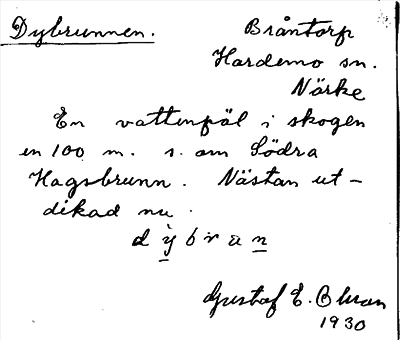 Dybrunnen. Bråntorp
Hardemo sn.
Närke
En vattenpäl i skogen
en 100 m. s. om Södra
Hagsbrunn. Nästan ut-
dikad nu.
d ỳ b r a n
Gustaf E.
1930